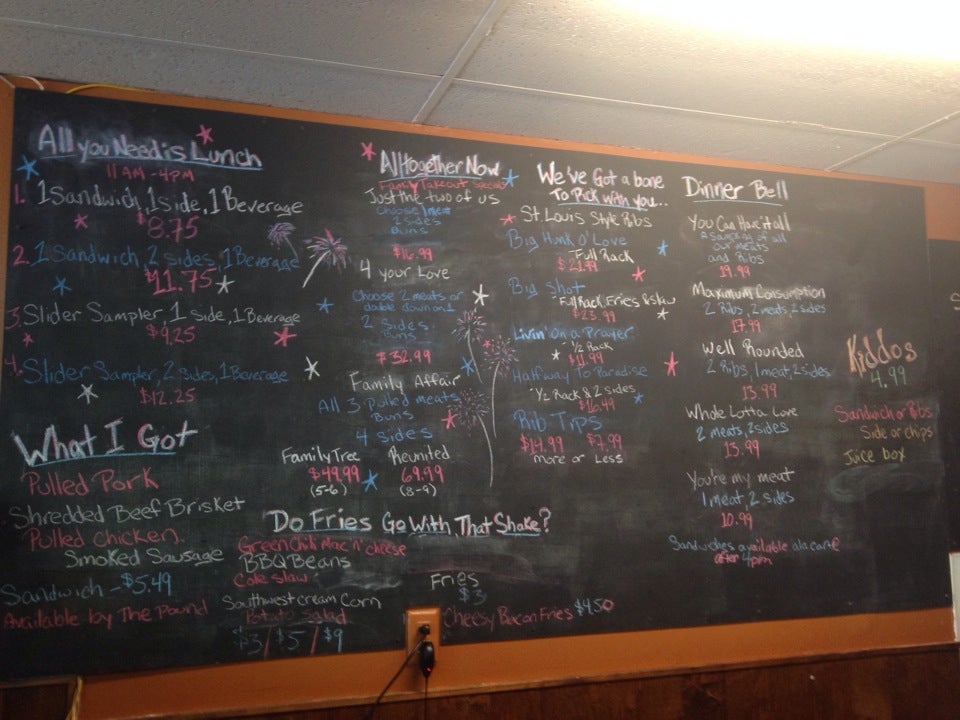 All you Need is Lunch
11 AM - 4PM
1. 1 Sandwich, 1 side, 1 Beverage
$8.75
2. 1 Sandwich, 2 sides, 1 Beverage
$11.75
3. Slider Sampler, 1 side, 1 Beverage
$9.25
4. Slider Sampler, 2 sides, 1 Beverage
$12.25
What I Got
Pulled Pork
Shredded Beef Brisket
Pulled chicken.
Smoked Sausage
Sandwich - $5.49
Available by The Pound
Alltogether Now
Family Takeout Specials
Just the two of us
Choose 1 meat
2 sides
Buns
$16.99
4 your Love
Choose 2 meats or
double down on 1
2 Sides
Buns
$32.99
Family Affair
All 3 pulled meats
Buns
4 sides
Family Tree
$49.99
(5-6)
Reunited
69.99
(8-9)
Do Fries Go With That Shake?
Green Chili Mac 'n' cheese
BBQ Beans
Cole slaw
Southwest cream Corn
Potato salad
$3/$5/$9
Fries
$3
Cheesy Bacon Fries $4.50
We've Got a bone
To Pick with you...
St Louis Style Ribs
Big Hunk O' Love
Full Rack
$21.99
Big Shot
Full Rack, Fries & slaw
$23.99
Livin' on a Prayer
1/2 Rack
$11.99
Halfway To Paradise
1/2 Rack & 2 sides
$16.49
Rib Tips
$14.99 $7.99
More or Less
Dinner Bell
You Can Have it all
all
our meats
and Ribs
19.99
Maximum Consumption
2 Ribs, 2 meats, 2 sides
17.99
Well Rounded
2 Ribs, 1 meat, 2 sides
13.99
Whole Lotta Love
2 meats, 2 sides
13.99
You're my meat
1 meat, 2 sides
10.99
Sandwiches available ala carte
after 4pm
Kiddos
4.99
Sandwich or Ribs
Side or chips
Juice box